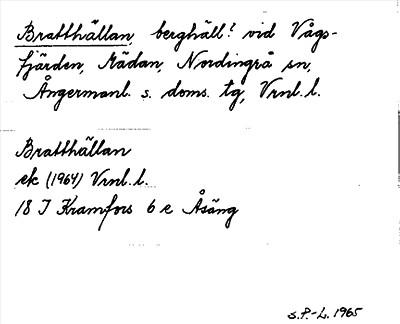 Bratthällan, berghäll? vid Vågs-
fjärden, Mädan, Nordingrå sn,
Ångermanl. s. doms. tg, Vrnl. l.
Bratthällan
ek (1964) Vrnl. l.
18 I Kramfors 6 e Åsäng
S.P.-L. 1965